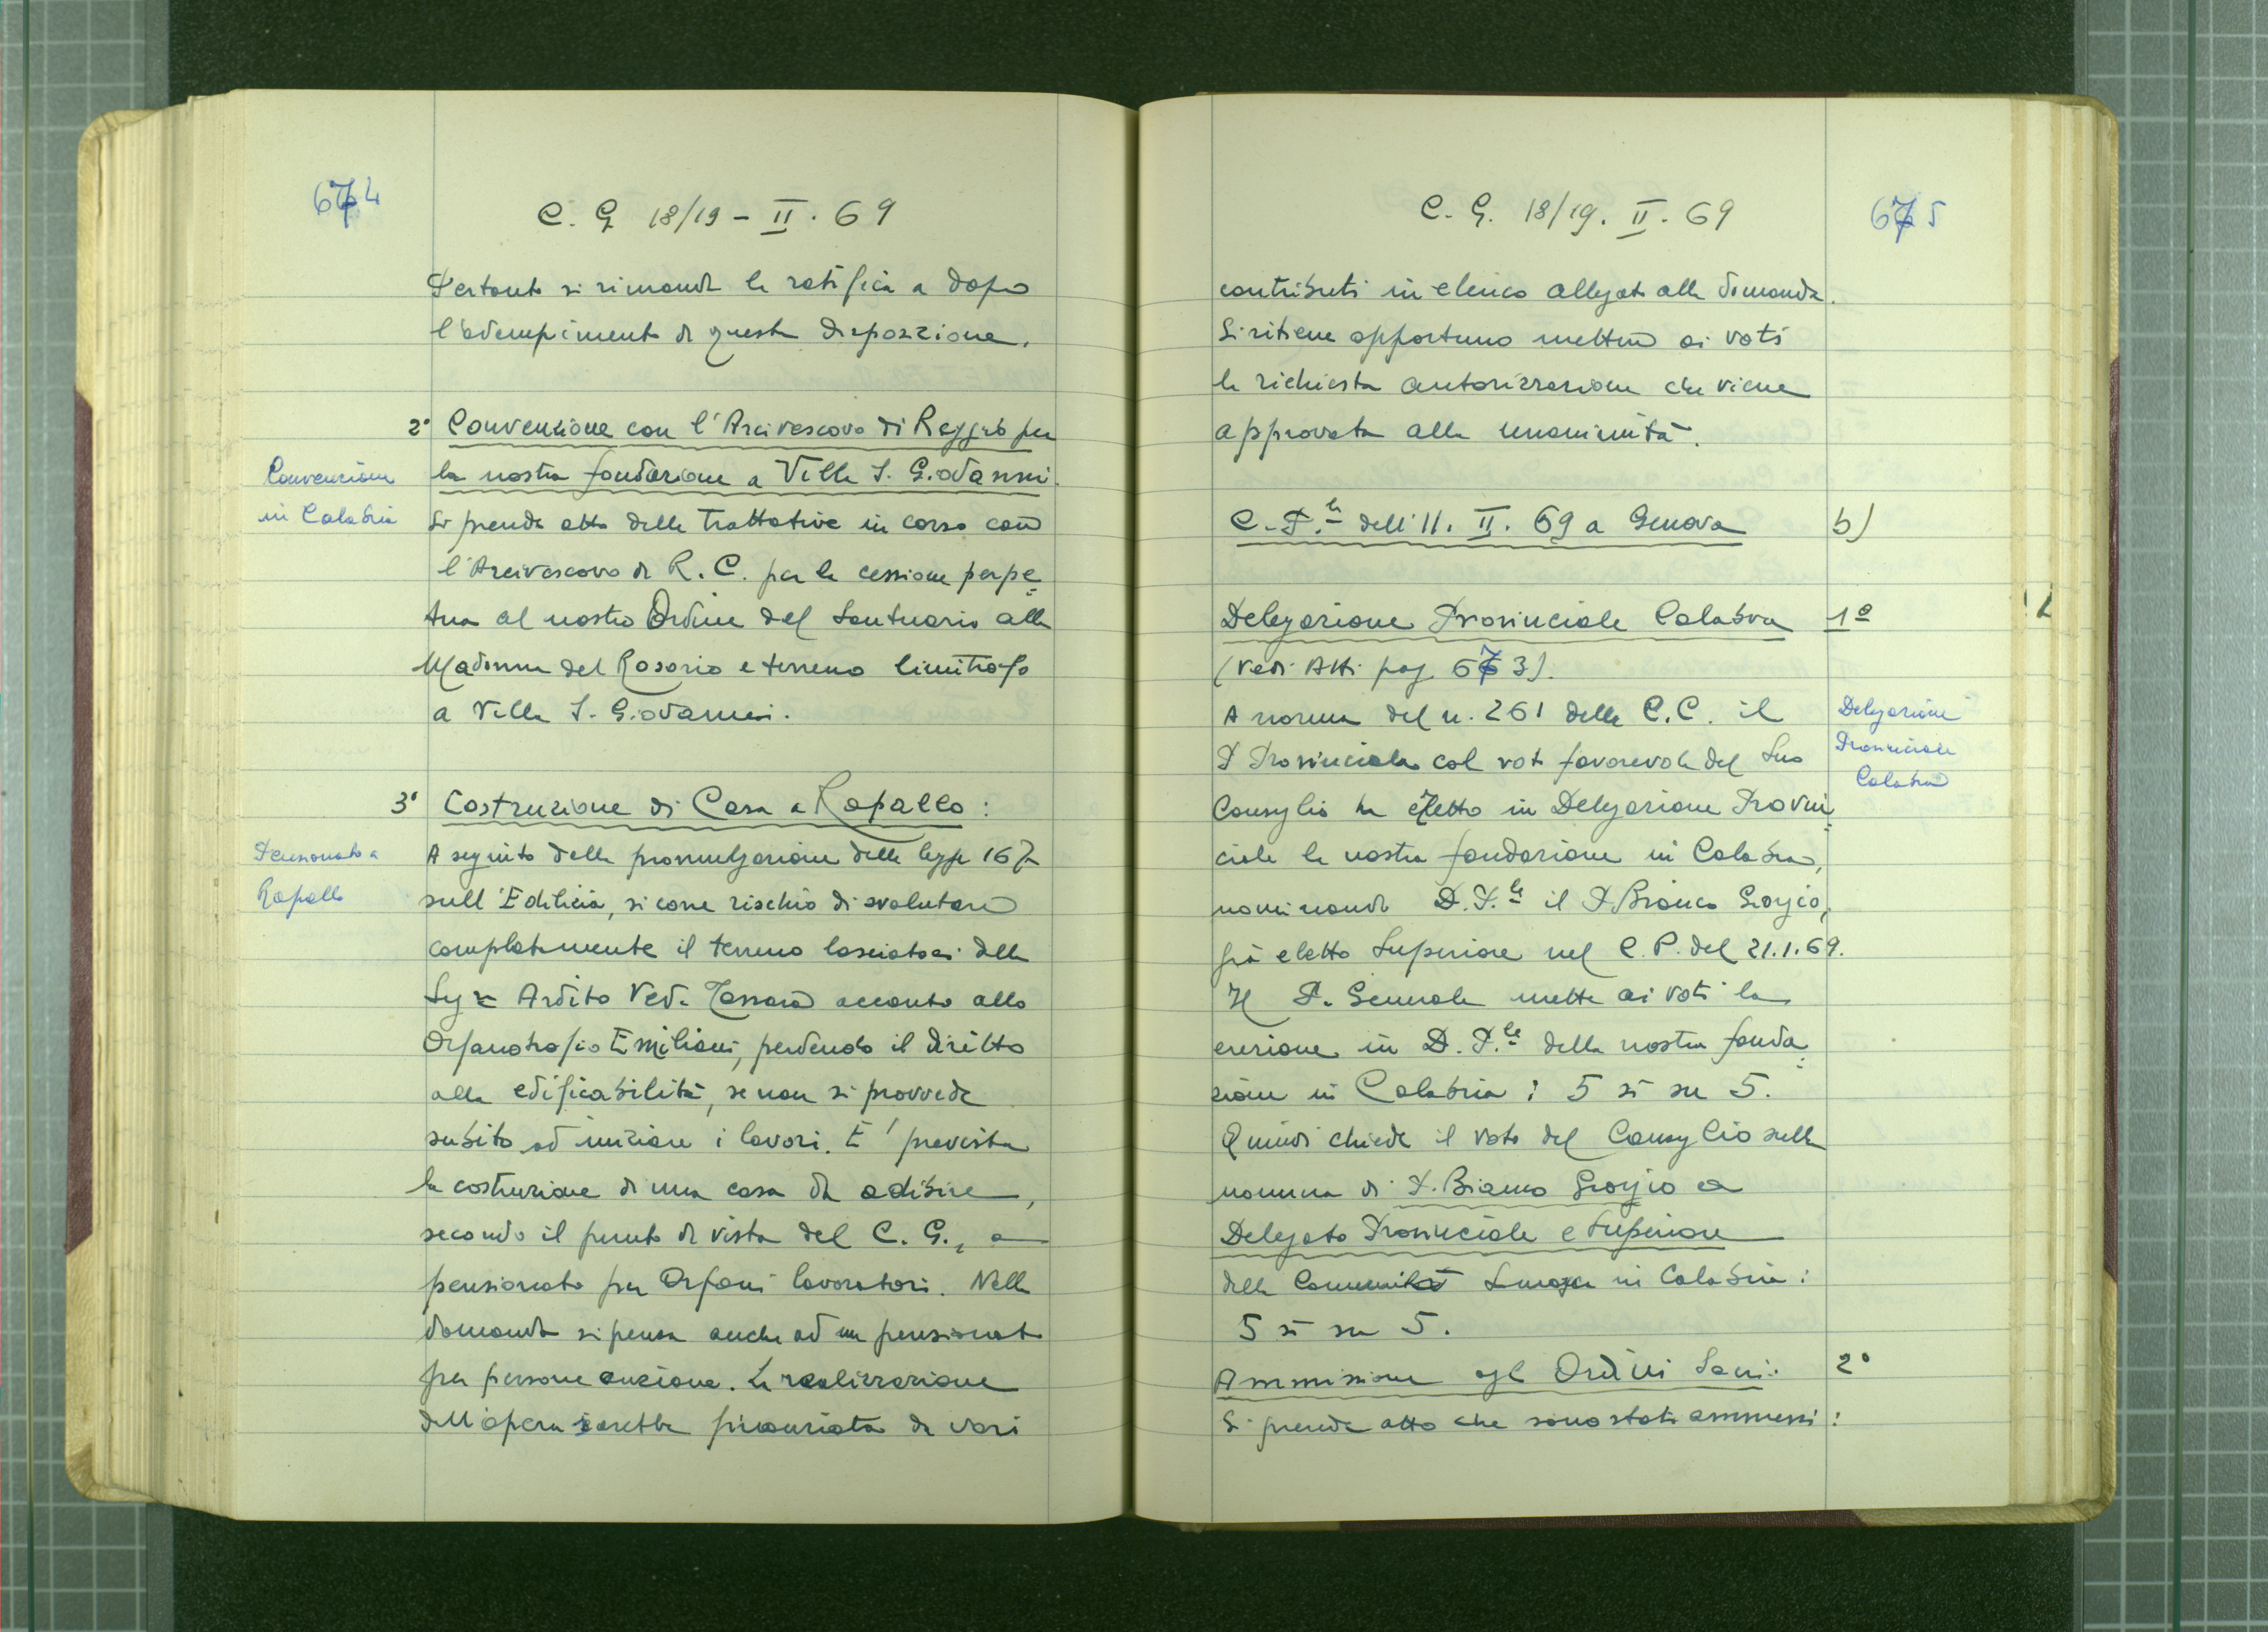 674
C. G. 18/19 - II. 69
Pertanto si rimanda la ratifica a dopo
l'adempimento di questa disposizione.
2° Convenzione con l'Arcivescovo di Reggio per
la nostra fondazione a Villa S. Giovanni.
Convenzione
in Calabria
Si prende atto delle trattative in corso con
l'Arcivescovo di R. C. per la cessione perpe=
tua al nostro Ordine del Santuario alla
Madonna del Rosario e terreno limitrofo
a Villa S. Giovanni.
3° Costruzione di Casa a Rapallo:
Pensionato a
Rapallo
A seguito della promulgazione della legge 167
sull'Edilizia, si corre rischio di svalutare
completamente il terreno lasciatoci dalla
Sig.ra Ardito Ved. accanto allo
Orfanotrofio Emiliani, perdendo il diritto
alla edificabilità, se non si provvede
subito ad iniziare i lavori. E' prevista
la costruzione di una casa da adibire,
secondo il punto di vista del C. G., a
pensionato per Orfani lavoratori. Nella
domanda si pensa anche ad un pensionato
per persone anziane. La realizzazione
dell'opera sarebbe finanziata da vari
C. G. 18/19. II. 69
675
contributi in elenco allegato alla domanda.
Si ritiene opportuno mettere ai voti
la richiesta autorizzazione che viene
approvata alla unanimità.
C. P.le dell'11. II. 69 a Genova b)
Delegazione Provinciale Calabra 1°
(Vedi Atti pag. 673).
A norma del n. 261 delle C.C. il
P. Provinciale col voto favorevole del Suo
Consiglio ha eretto in Delegazione Provin=
ciale la nostra fondazione in Calabria,
Delegazione
Provinciale
Calabra
nominando D. P.le il P. Bianco Giorgio,
già eletto Superiore nel C. P. del 21.1.69.
Il P. Generale mette ai voti la
erezione in D. P.le della nostra fonda=
zione in Calabria: 5 sì su 5.
Quindi chiede il voto del Consiglio sulla
nomina di P. Bianco Giorgio a
Delegato Provinciale e Superiore
della Comunità in Calabria:
5 sì su 5.
Ammissione agli Ordini Sacri: 2°
Si prende atto che sono stati ammessi: